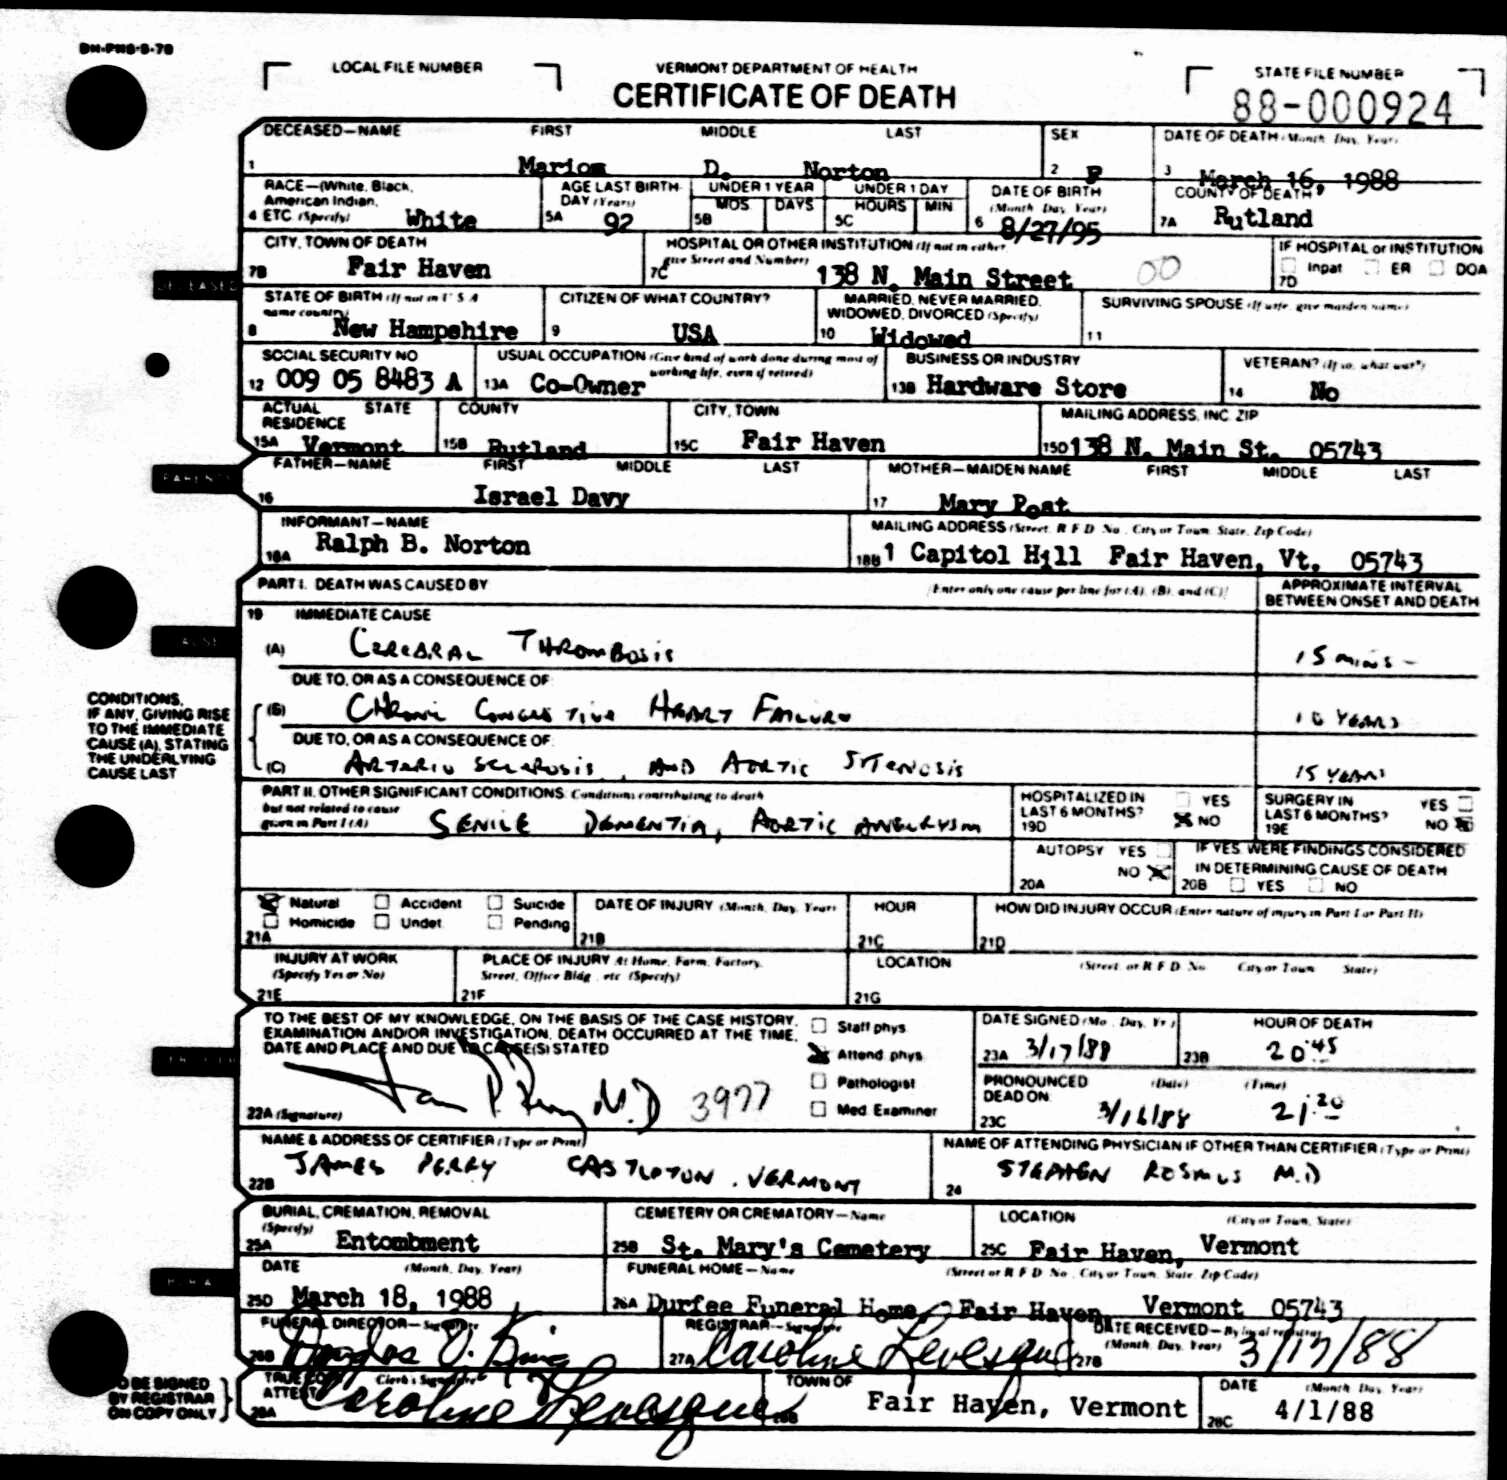 DH-PHS-9-78
LOCAL FILE NUMBER
VERMONT DEPARTMENT OF HEALTH
CERTIFICATE OF DEATH
STATE FILE NUMBER
88-000924
DECEASED—NAME FIRST MIDDLE LAST
1 Mariom D. Norton
SEX
2 F
DATE OF DEATH (Month, Day, Year)
3 March 16, 1988
RACE—(White, Black, American Indian,
4 ETC (Specify) White
AGE LAST BIRTHDAY (Years)
5A 92
UNDER 1 YEAR
5B MOS DAYS
UNDER 1 DAY
5C HOURS MIN
DATE OF BIRTH (Month, Day, Year)
6 8/27/95
COUNTY OF DEATH
7A Rutland
CITY, TOWN OF DEATH
7B Fair Haven
HOSPITAL OR OTHER INSTITUTION (If not in either give Street and Number)
7C 138 N. Main Street 00
IF HOSPITAL or INSTITUTION
Inpat ER DOA
7D
STATE OF BIRTH (If not in U S A name country)
8 New Hampshire
CITIZEN OF WHAT COUNTRY?
9 USA
MARRIED, NEVER MARRIED, WIDOWED, DIVORCED (Specify)
10 Widowed
SURVIVING SPOUSE (If wife, give maiden name)
11
SOCIAL SECURITY NO
12 009 05 8483 A
USUAL OCCUPATION (Give kind of work done during most of working life, even if retired)
13A Co-Owner
BUSINESS OR INDUSTRY
13B Hardware Store
VETERAN? (If so, what war?)
14 No
ACTUAL RESIDENCE STATE
15A Vermont
COUNTY
15B Rutland
CITY, TOWN
15C Fair Haven
MAILING ADDRESS, INC ZIP
15D 138 N. Main St. 05743
FATHER—NAME FIRST MIDDLE LAST
16 Israel Davy
MOTHER—MAIDEN NAME FIRST MIDDLE LAST
17 Mary Post
INFORMANT—NAME
18A Ralph B. Norton
MAILING ADDRESS (Street, R F D No, City or Town, State, Zip Code)
18B 1 Capitol Hill Fair Haven, Vt. 05743
PART I. DEATH WAS CAUSED BY
[Enter only one cause per line for (A), (B), and (C)]
APPROXIMATE INTERVAL BETWEEN ONSET AND DEATH
19 IMMEDIATE CAUSE
(A) CEREBRAL THROMBOSIS 15 mins -
DUE TO, OR AS A CONSEQUENCE OF:
(B) CHRONIC CONGESTIVE HEART FAILURE 10 YEARS
DUE TO, OR AS A CONSEQUENCE OF:
(C) ARTERIO SCLEROSIS, AND AORTIC STENOSIS 15 YEARS
CONDITIONS,
IF ANY, GIVING RISE
TO THE IMMEDIATE
CAUSE (A), STATING
THE UNDERLYING
CAUSE LAST
PART II. OTHER SIGNIFICANT CONDITIONS: Conditions contributing to death
but not related to cause
given in Part I (A) SENILE DEMENTIA, AORTIC ANEURYSM
HOSPITALIZED IN LAST 6 MONTHS?
19D YES NO
SURGERY IN LAST 6 MONTHS?
19E YES NO
AUTOPSY YES
NO
20A
IF YES, WERE FINDINGS CONSIDERED
IN DETERMINING CAUSE OF DEATH
20B YES NO
Natural Accident Suicide
Homicide Undet. Pending
21A
DATE OF INJURY (Month, Day, Year)
21B
HOUR
21C
HOW DID INJURY OCCUR (Enter nature of injury in Part I or Part II)
21D
INJURY AT WORK
(Specify Yes or No)
21E
PLACE OF INJURY At Home, Farm, Factory,
Street, Office Bldg., etc. (Specify)
21F
LOCATION (Street, or R F D No City or Town State)
21G
TO THE BEST OF MY KNOWLEDGE, ON THE BASIS OF THE CASE HISTORY,
EXAMINATION AND/OR INVESTIGATION, DEATH OCCURRED AT THE TIME,
DATE AND PLACE AND DUE TO CAUSE(S) STATED
22A (Signature) M.D 3977
Staff phys.
Attend. phys.
Pathologist
Med. Examiner
DATE SIGNED (Mo., Day, Yr.)
23A 3/17/88
HOUR OF DEATH
23B 20 45
PRONOUNCED DEAD ON: (Date) (Time)
23C 3/16/88 21:20
NAME & ADDRESS OF CERTIFIER (Type or Print)
22B JAMES PERRY CASTLETON, VERMONT
NAME OF ATTENDING PHYSICIAN IF OTHER THAN CERTIFIER (Type or Print)
24 STEPHEN ROSMUS M.D
BURIAL, CREMATION, REMOVAL
(Specify)
25A Entombment
CEMETERY OR CREMATORY—Name
25B St. Mary's Cemetery
LOCATION (City or Town, State)
25C Fair Haven, Vermont
DATE (Month, Day, Year)
25D March 18, 1988
FUNERAL HOME—Name (Street or R F D No, City or Town, State, Zip Code)
26A Durfee Funeral Home, Fair Haven, Vermont 05743
FUNERAL DIRECTOR—Signature
26B Douglas O. King
REGISTRAR—Signature
27A Caroline Levesque
DATE RECEIVED—By local registrar
(Month, Day, Year)
27B 3/17/88
TO BE SIGNED
BY REGISTRAR
ON COPY ONLY
TRUE COPY Clerk's Signature
ATTEST
28A Caroline Levesque
TOWN OF
28B Fair Haven, Vermont
DATE (Month, Day, Year)
28C 4/1/88